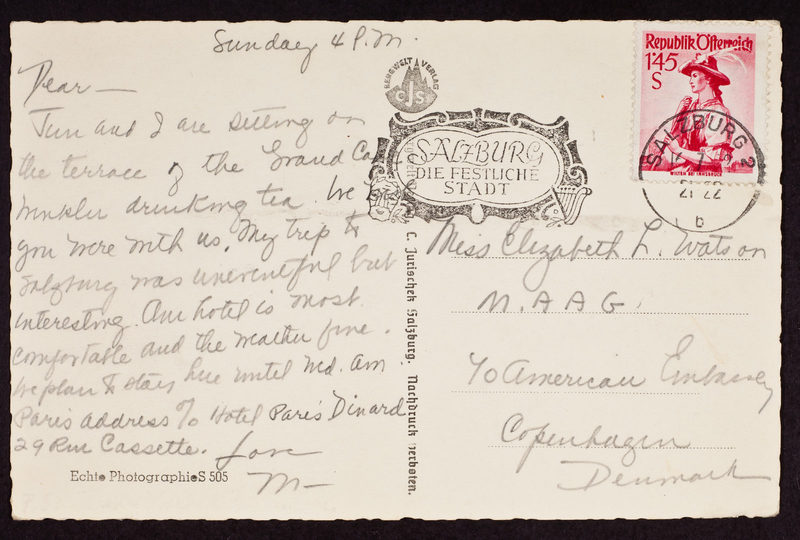 Sunday 4 P.M.
Dear —
Jim and I are sitting on
the terrace of the Grand Cafe
Winkler drinking tea. We
you were with us. My trip to
Salzburg was uneventful but
interesting. Our hotel is most
comfortable and the weather fine.
We plan to stay here until Wed. Am
Paris address c/o Hotel Paris Dinard
29 Rue Cassette. Love
M—
Echte PhotographieS 505
BERGWELT VERLAG
CJS
SALZBURG
DIE FESTLICHE
STADT
C. Jurischek Salzburg. Nachdruck verboten.
Republik Österreich
1'45
S
WILTEN BEI INNSBRUCK
SALZBURG 2
21 22
b
Miss Elizabeth L. Watson
M. A A G.
c/o American Embassy
Copenhagen
Denmark